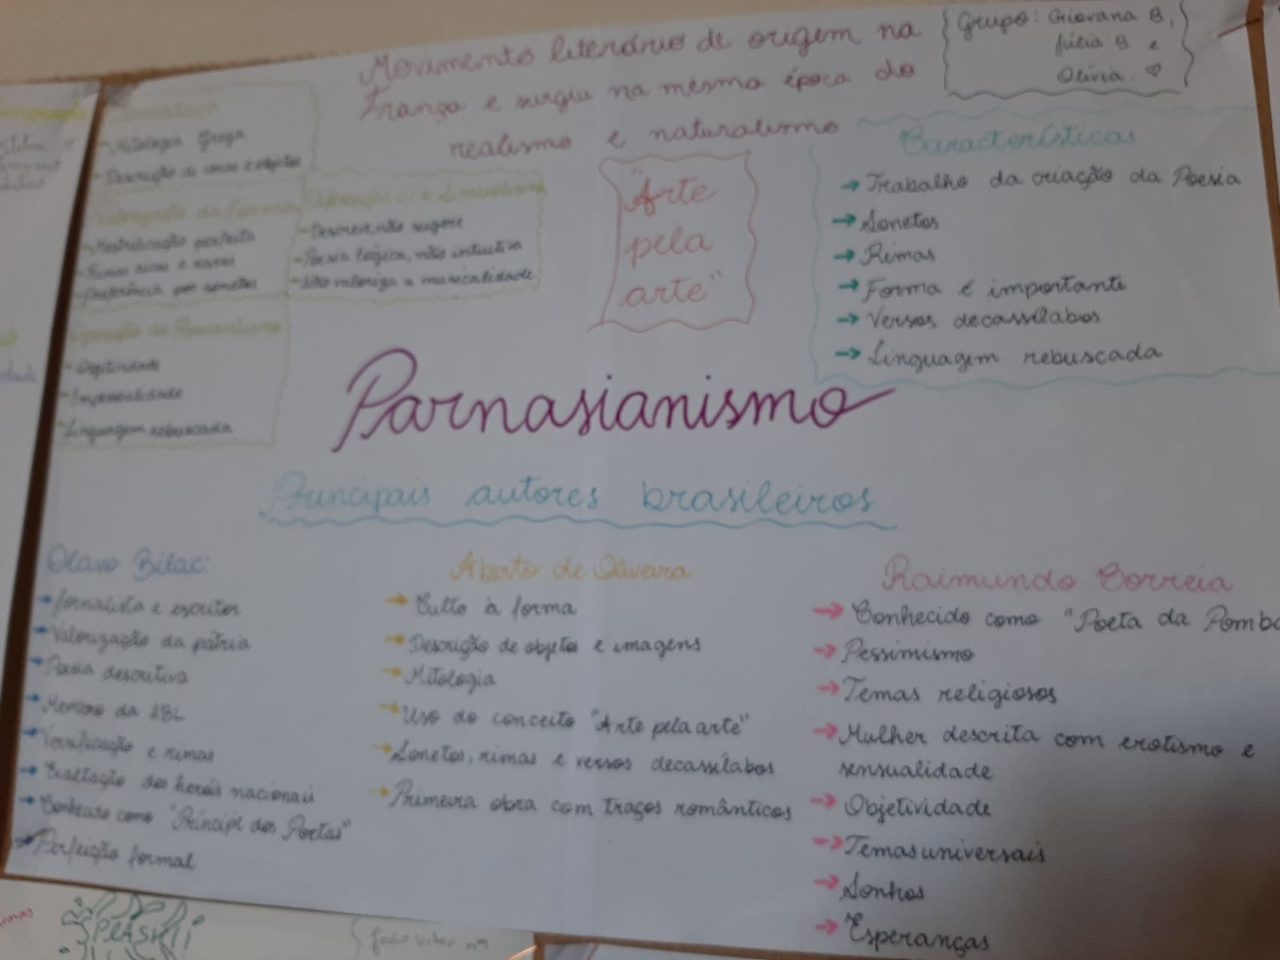 Movimento literário de origem na
França e surgiu na mesma época do
realismo e naturalismo
Grupo: Giovana B,
Júlia B e
Olívia ♡
- Mitologia Grega
- Descrição de cenas e objetos
- Metrificação perfeita
- Rimas ricas e raras
- Preferência por sonetos
- Descreve, não sugere
- Poesia lógica, não intuitiva
- Não valoriza a musicalidade
Oposição ao Romantismo
- Objetividade
- Impessoalidade
- Linguagem rebuscada
"Arte
pela
arte"
Características
→ Trabalho da criação da Poesia
→ Sonetos
→ Rimas
→ Forma é importante
→ Versos decassílabos
→ Linguagem rebuscada
Parnasianismo
Principais autores brasileiros
Olavo Bilac:
→ Jornalista e escritor
→ Valorização da pátria
→ descritiva
→ Membro da ABL
→ Versificação e rimas
→ Exaltação dos heróis nacionais
→ Conhecido como "Príncipe dos Poetas"
→ Perfeição formal
Alberto de Oliveira
→ Culto à forma
→ Descrição de objetos e imagens
→ Mitologia
→ Uso do conceito "Arte pela arte"
→ Sonetos, rimas e versos decassílabos
→ Primeira obra com traços românticos
Raimundo Correia
→ Conhecido como "Poeta da Pomba
→ Pessimismo
→ Temas religiosos
→ Mulher descrita com erotismo e
sensualidade
→ Objetividade
→ Temas universais
→ Sonhos
→ Esperanças
João Vitor